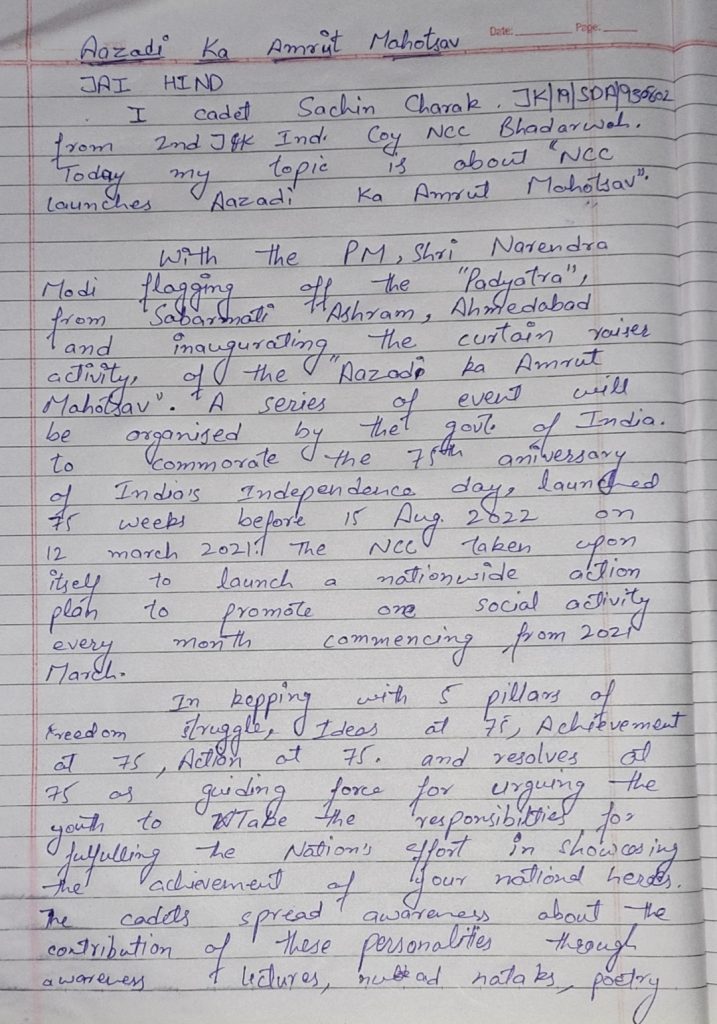 Date: Page:
Aazadi Ka Amrit Mahotsav
JAI HIND
I cadet Sachin Charak. JK/19/SDA/930602
from 2nd J&K Ind. Coy NCC Bhadarwah.
Today my topic is about "NCC
launches Aazadi Ka Amrut Mahotsav".
With the PM, Shri Narendra
Modi flagging off the "Padyatra",
from Sabarmati Ashram, Ahmedabad
and inaugurating the curtain raiser
activity, of the "Aazadi ka Amrut
Mahotsav". A series of event will
be organised by the govt. of India.
to commorate the 75th aniversary
of India's Independence day, launched
75 weeks before 15 Aug. 2022 on
12 march 2021. The NCC taken upon
itself to launch a nationwide action
plan to promote one social activity
every month commencing from 2021
March.
In kepping with 5 pillars of
freedom struggle, Ideas at 75, Achievement
at 75, Action at 75. and resolves at
75 as guiding force for urguing the
youth to Take the responsibilties for
fulfulling the Nation's effort in showcasing
the achievement of your national heroes.
The cadets spread awareness about the
contribution of these personalities through
awareness lectures, nukkad nataks, poetry